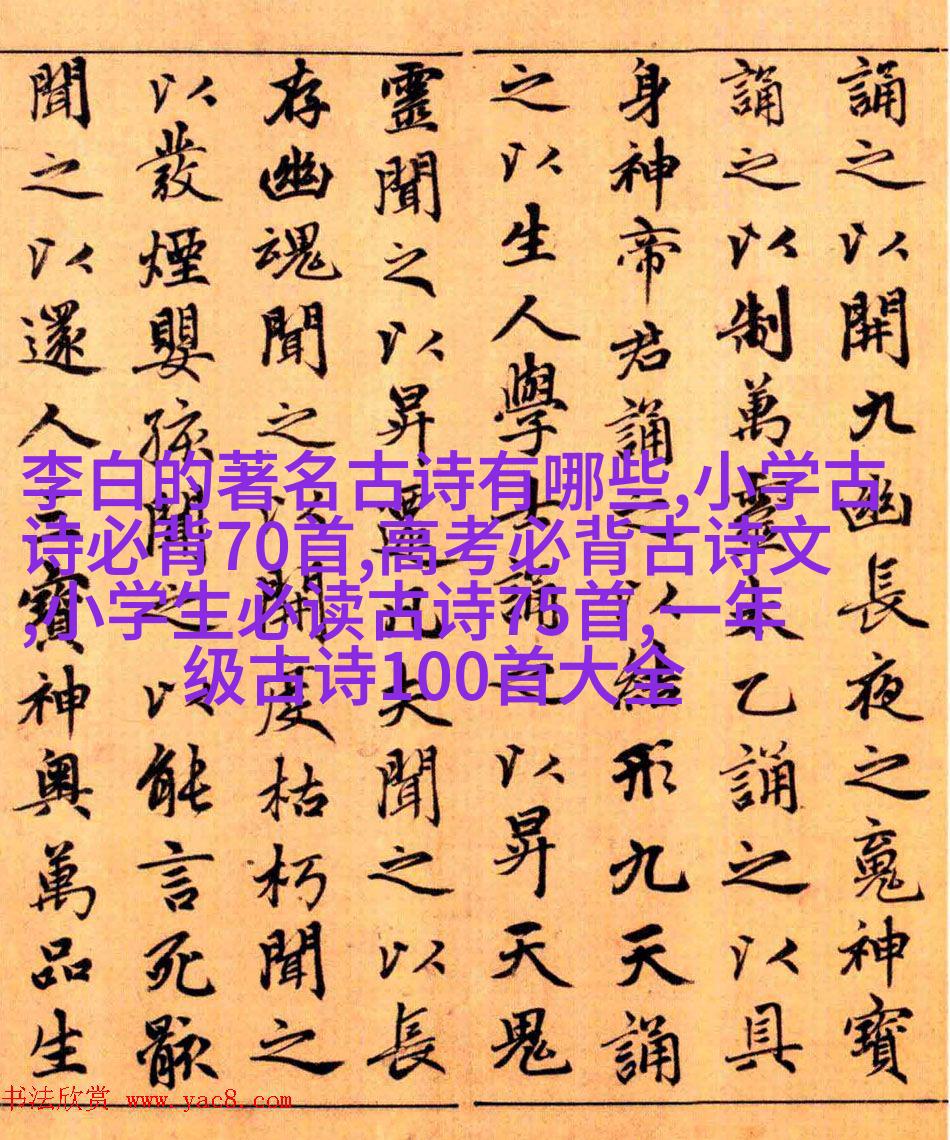 誦之以開九幽長夜之魂神寶
誦之以制萬靈太乙誦之以具
身神帝君誦之以結形九天誦
之以生人學士誦之以昇天鬼
靈聞之以昇遷凡夫聞之以長
存幽魂聞之以開度枯朽聞之
以發煙嬰孩聞之以能言死骸
聞之以還人三寶神奧萬品生
李白的著名古诗有哪些,小学古
诗必背70首,高考必背古诗文
,小学生必读古诗75首,一年
级古诗100首大全
书法欣赏 www.yac8.com